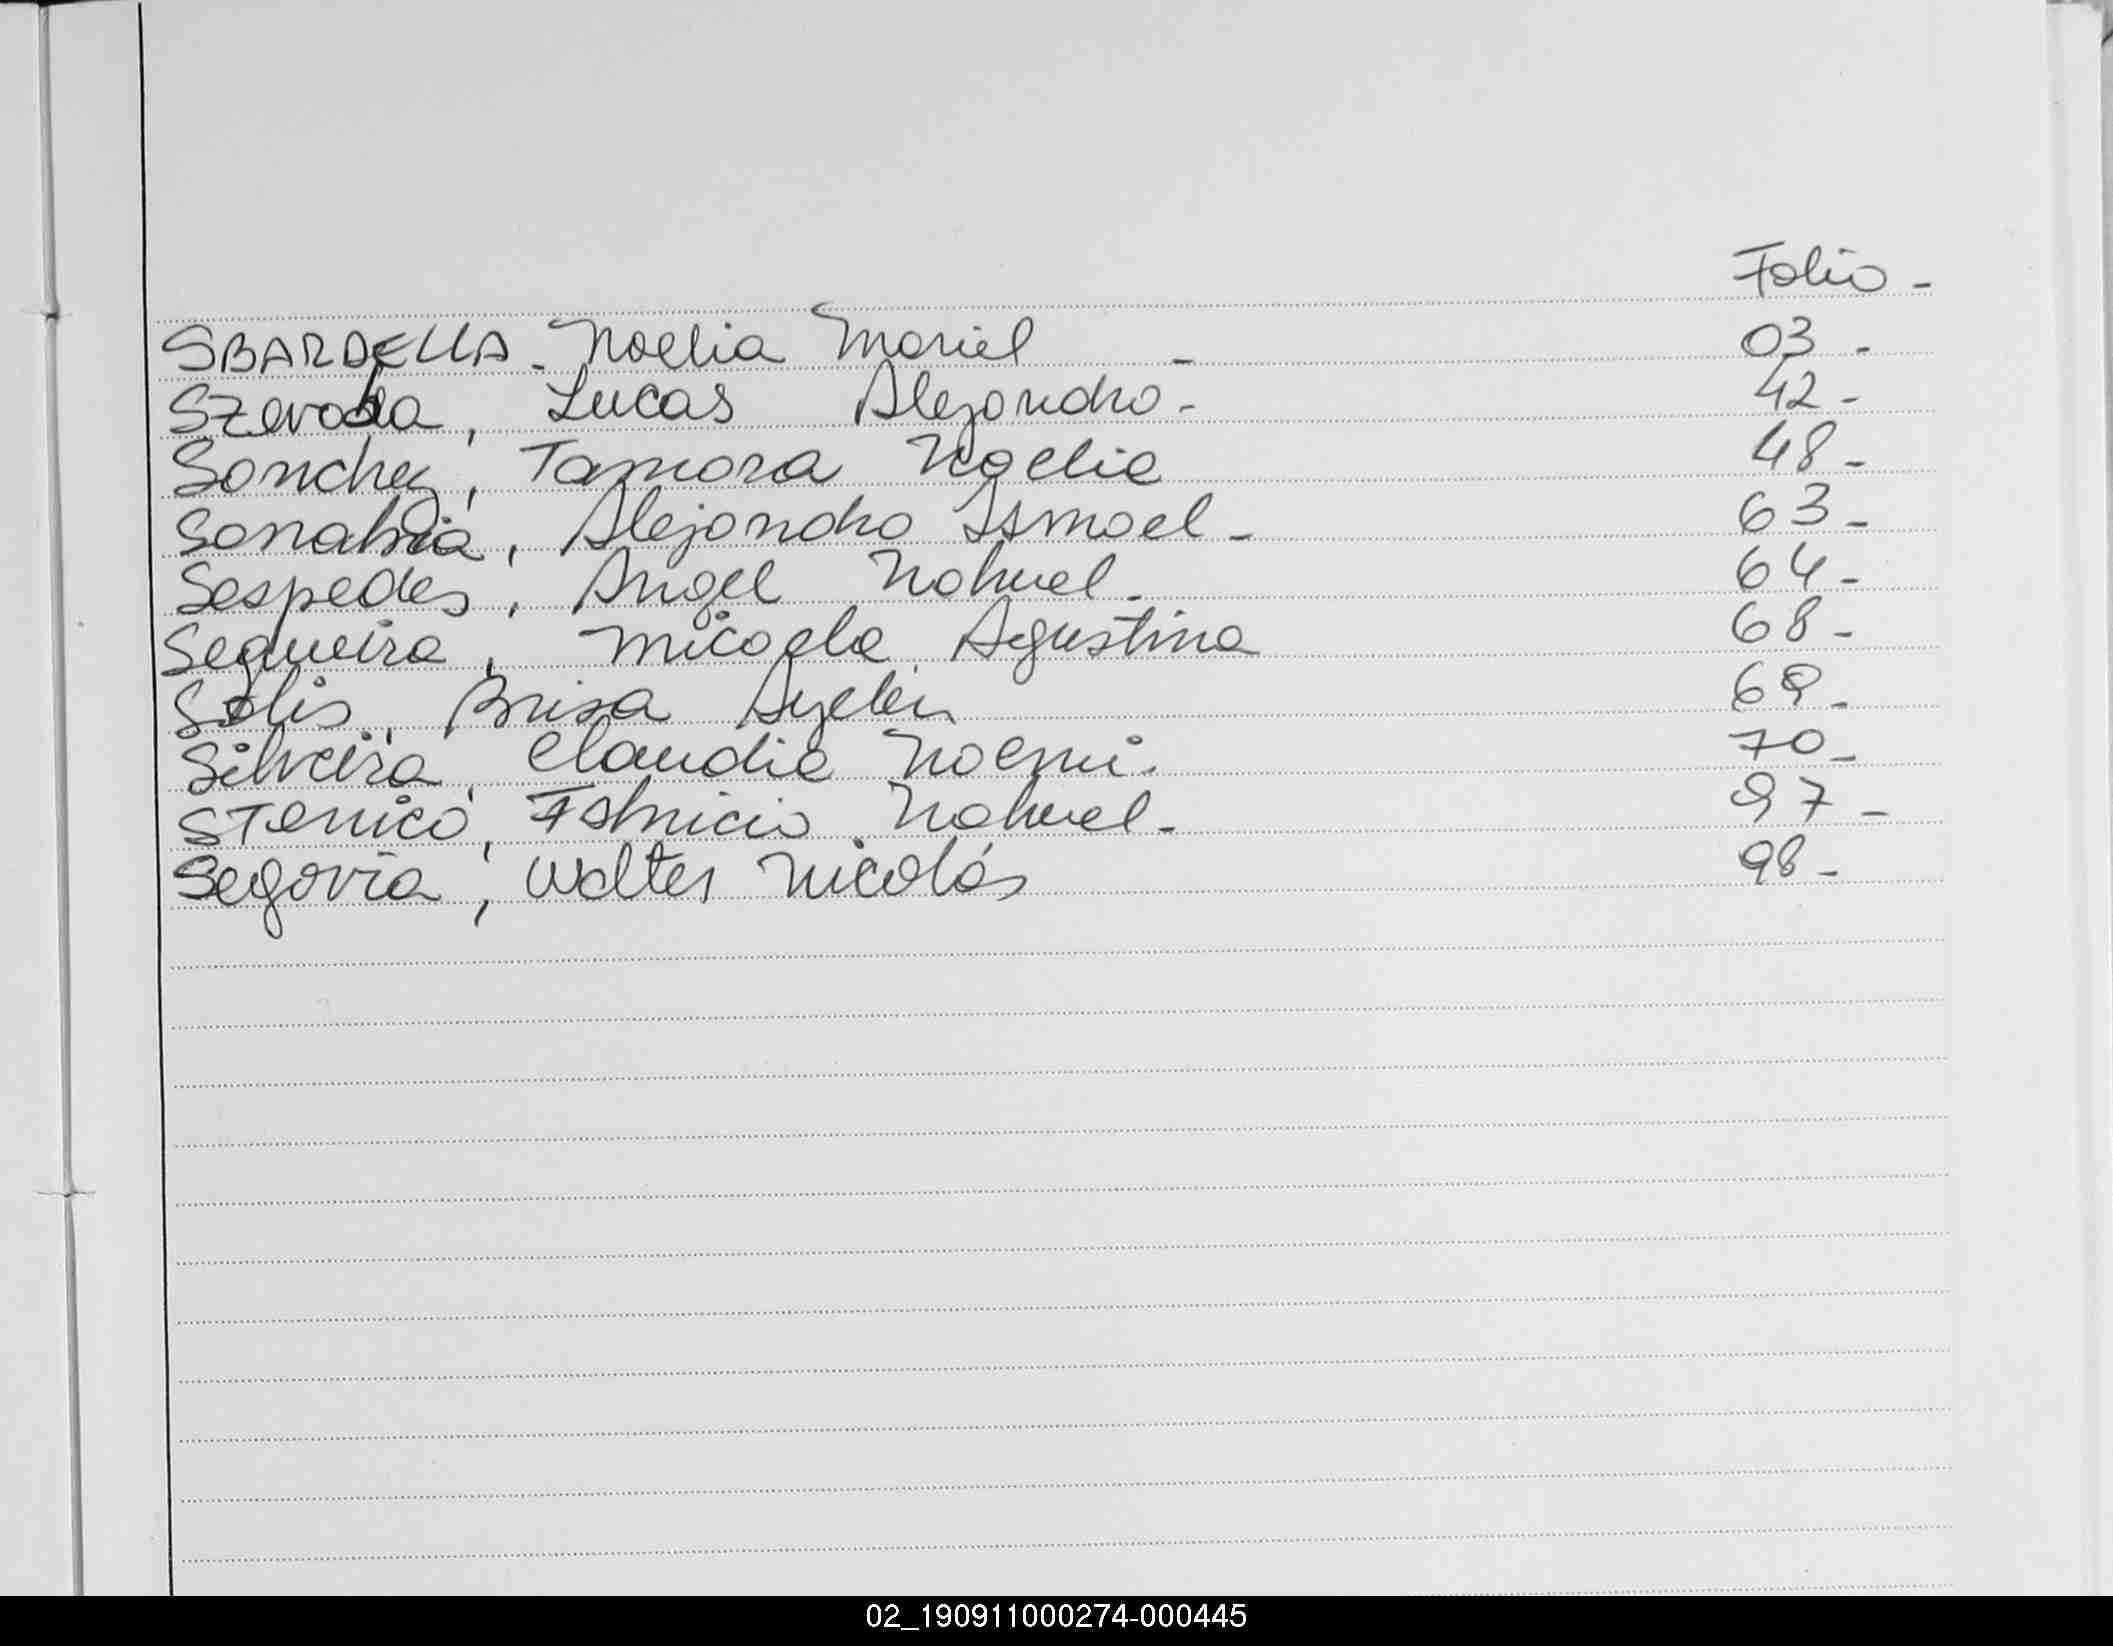 Folio -
SBARDELLA - Noelia Mariel - 03 -
Szevoda, Lucas Alejandro - 42 -
Sanchez, Tamara Noelia 48 -
Sanabria, Alejandro Ismael - 63 -
Sespedes, Angel Nahuel - 64 -
Sequeira, Micaela Agustina 68 -
Solis, Brisa Ayelén 69 -
Silveira, Claudia Noemi. 70 -
STenico, Fabricio Nahuel - 97 -
Segovia, Walter Nicolás 98 -
02_190911000274-000445